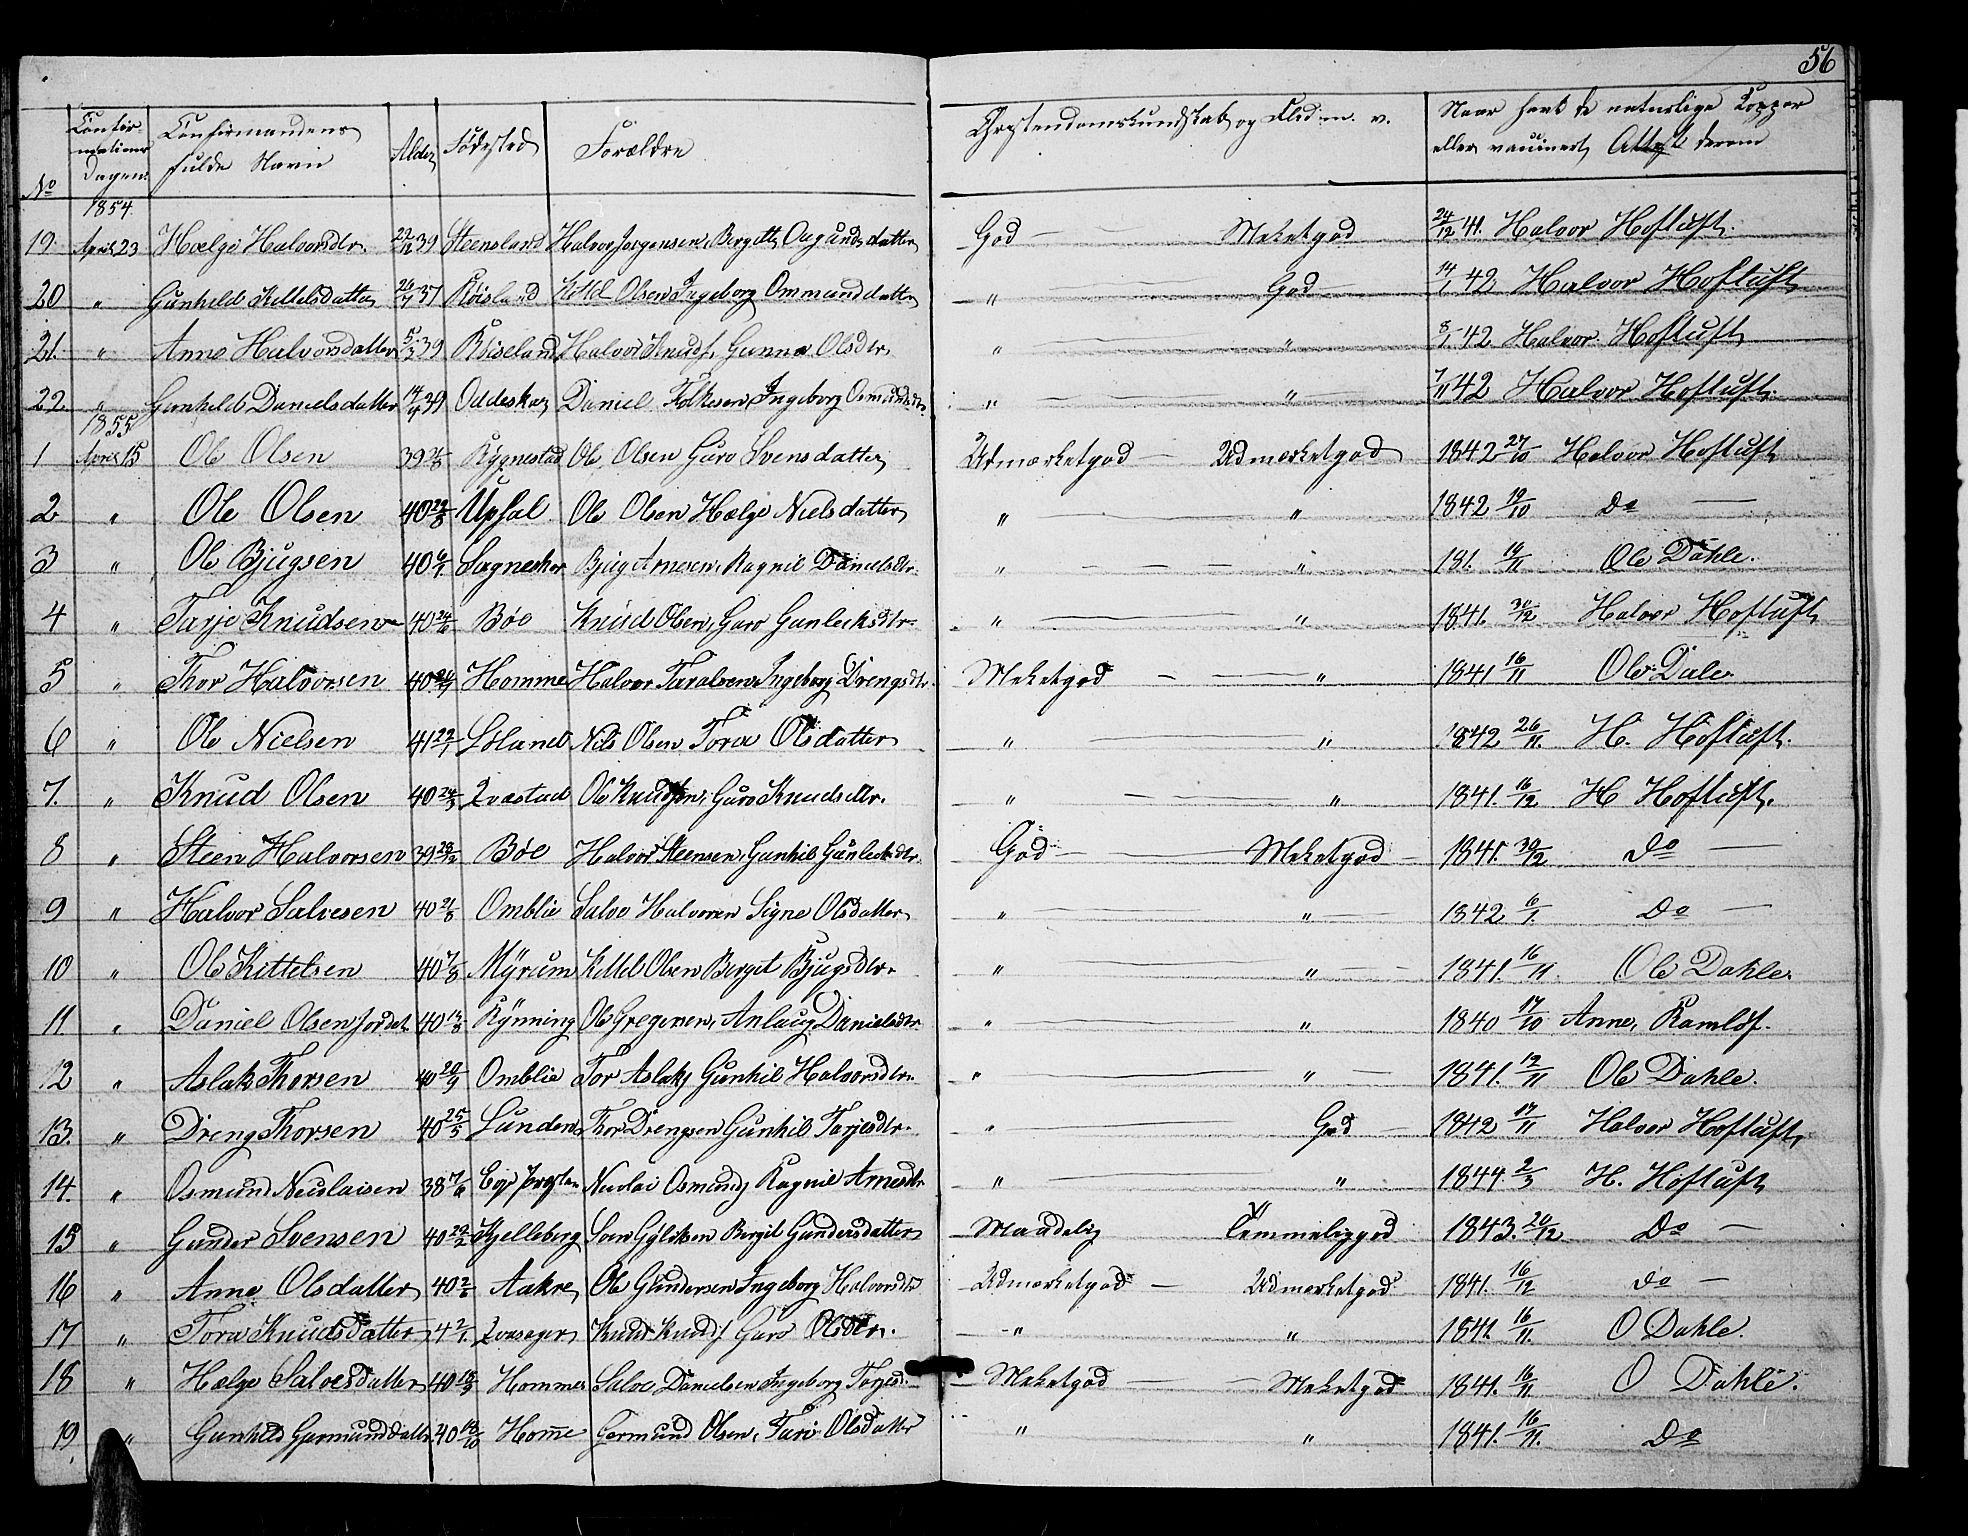 56
No
Confir-
mations
Dagen
Confirmandens
fulde Navn
Alder
Fødested
Forældre
Christendomskundskab og Flid m. v.
Naar havt de naturlige Kopper
eller vaccineret, Attest derom
1854
19 April 23 Hælge Halvorsdtr. 39 Steensland Halvor Jorgensen, Bergitte Aagundsdatter God — Meketgod 24/12 41. Halvor Hoftuft.
20 " Gunhild Kettelsdatter 26/7 37 Røisland Kettel Olsen Ingeborg Ommundsdatter " — God 14/1 42 Halvor Hoftuft
21. " Anne Halvorsdatter 5/3 39 Røiseland Halvor Knuds. Gunna Olsdtr. " " 42 Halvor Hoftuft
22. " Gunhild Danielsdatter 39 Oddeskar Daniel Folkesen, Ingeborg Osmundsdtr " — " 7/11 42 Halvor Hoftuft.
1855
1 April 15 Ole Olsen 39 Rygnestad Ole Olsen Guro Svensdatter Udmærketgod — Udmærketgod 1842 27/10 Halvor Hoftuft
2 " Ole Olsen 40 Upsal Ole Olsen Hælge Nielsdatter " — " 1842 19/10 Do —
3 " Ole Bjugsen 40 6/1. Sagneskar Bjug Arnesen, Ragnil Danielsdtr. " — " 181. 19/11 Ole Dahle.
4 " Tarje Knudsen 40 Bøe Knud Olsen, Guro Gunleiksdtr. " — " 1841. 30/12 Halvor Hoftuft
5 " Thor Halvorsen 40 Homme Halvor Taralsen, Ingeborg Drengsdtr. Meketgod — " 1841 16/11 Ole Dale
6 " Ole Nielsen 41 22/1 Nils Olsen Tora Olsdatter " — " 1842 26/11. H. Hoftuft.
7. " Knud Olsen 40 24/3 Qvastad Ole Knudsen, Guro Knudsdtr. " — " 1841. 16/12 H Hoftuft.
8 " Steen Halvorsen 39 28/12 Bøe Halvor Steensen, Gunhil Gunleiksdtr. God — Meketgod — 1841. 30/12 Do —
9 " Halvor Salvesen 40 21/8 Omblie Salve Halvorsen Signe Olsdatter " — " — 1842. 6/1. Do —
10 " Ole Kittelsen 40 7/8 Myrum Kettel Olsen Berget Bjugsdtr. " — " — 1841. 16/11. Ole Dahle.
11 " Daniel Olsen Jordet 40 13/8 Rynning Ole Gregersen, Anlaug Danielsdtr " — " 1840 17/10 Anne, Ramløf.
12 " Aslak Thorsen 40 20/9 Omblie Tor Aslaks. Gunhil Halvorsdtr. " — " — 1841. 12/11 Ole Dahle.
13. " Dreng Thorsen 40 25/5 Lunden Thor Drengsen Gunhil Tarjesdtr. " — God — 1842 17/11 Halvor Hoftuft
14. " Osmund Neulaisen 38 Neulai Osmunds. Ragnil Arnesdtr. " — " 1844. 2/3 H. Hoftuft
15 " Gunder Svensen 40 29/2 Kjelleberg Sven Gjliksen Bergit Gundersdatter Maadelig Temmeliggod 1843. 20/12. Do —
16 " Anne Olsdatter 40 Aakre Ole Gundersen Ingeborg Halvorsdtr Udmærketgod — Udmærketgod 1841. 16/12 Do —
17 " Tora Knudsdatter 4 2/1. Qvasager Knud Knuds. Guro Olsdtr. " " 1841 16/11. O Dahle.
18 " Hælge Salvesdatter 40 18/3 Homme Salve Danielsen Ingeborg Tarjesd. Meketgod — Meketgod 1841. 16/11. O Dahle.
19 " Gunhild Gjermundsdatter 40 18/10 Homme Germund Olsen, Turi Olsdatter " " 1841. 16/11. Do